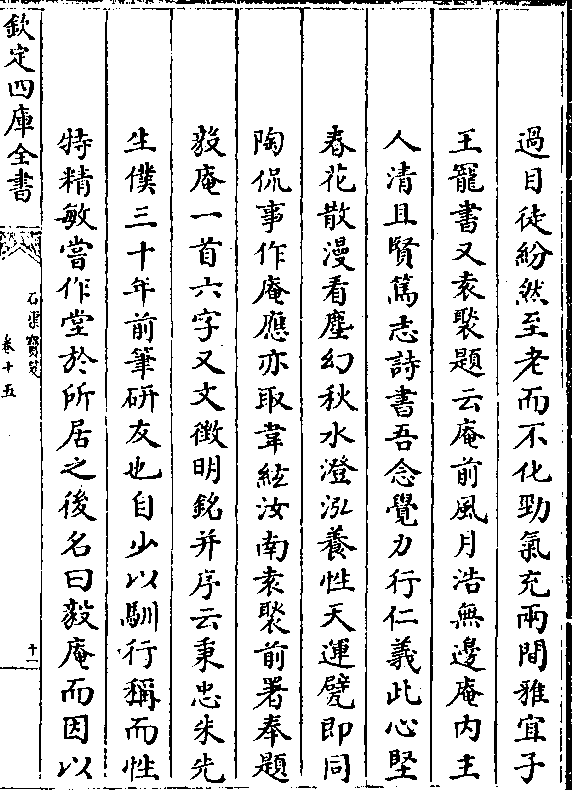 過目徒紛然至老而不化勁氣充兩間雅宜子
王寵書又袁褧題云庵前風月浩無邊庵内主
人清且賢篤志詩書吾念覺力行仁義此心堅
春花散漫看塵幻秋水澄泓養性天運甓即同
陶侃事作庵應亦取韋絃汝南袁褧前署奉題
毅庵一首六字又文徵明銘并序云秉忠朱先
生僕三十年前筆研友也自少以馴行稱而性
特精敏嘗作堂於所居之後名曰毅庵而因以
欽定四庫全書
石渠寳笈
卷十五
十二